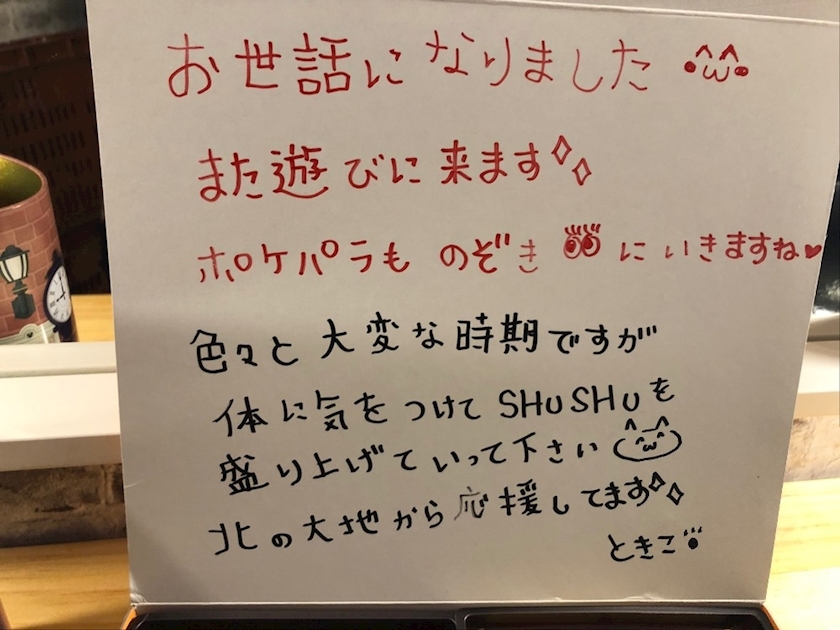 お世話になりました
また遊びに来ます
ポケパラも のぞき にいきますね♥
色々と大変な時期ですが
体に気をつけて SHUSHUを
盛り上げていって下さい
北の大地から応援してます
ときこ